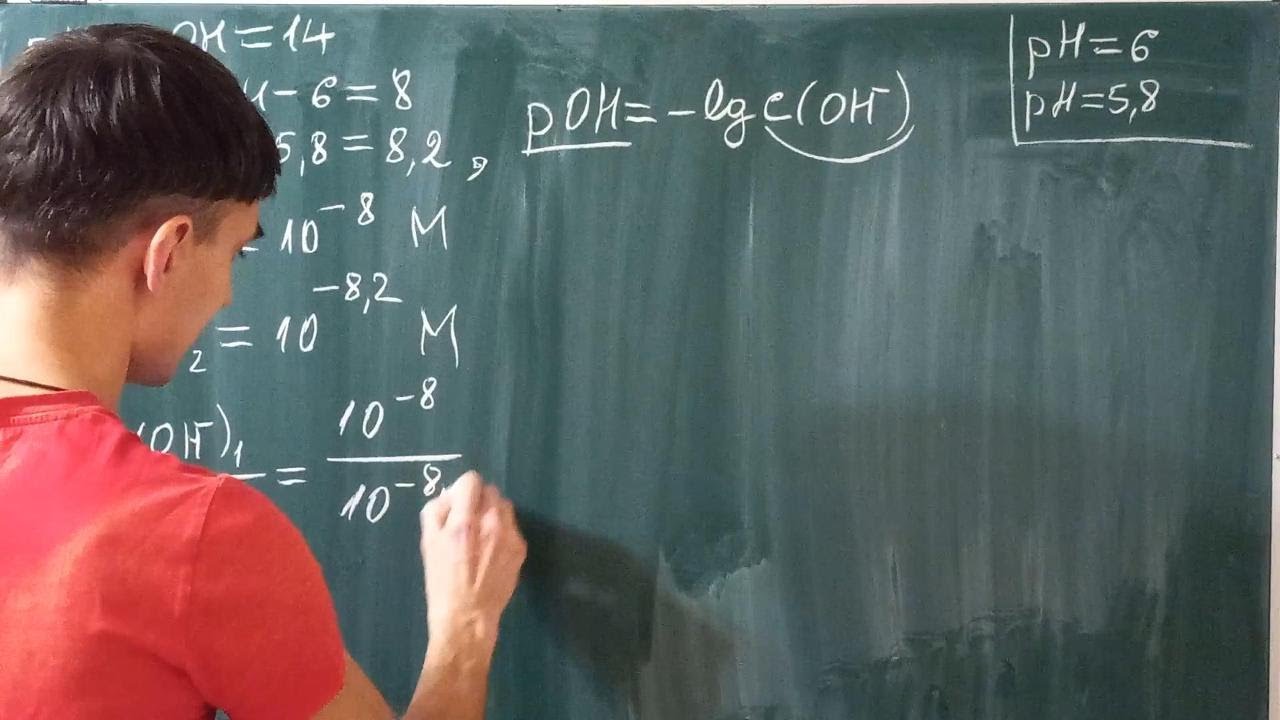 OH = 14
- 6 = 8
5,8 = 8,2 ,
10⁻⁸ M
₂ = 10⁻⁸,² M
(OH⁻)₁ = 10⁻⁸
10⁻⁸
pOH = -lg c(OH⁻)
pH = 6
pH = 5,8